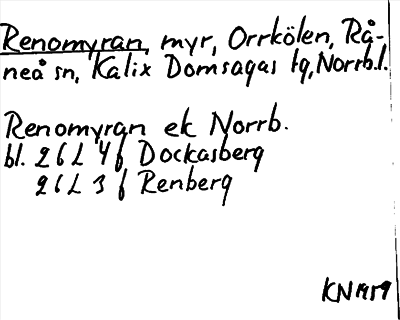 Renomyran, myr, Orrkölen, Rå-
neå sn, Kalix Domsagas tg, Norrb.l.
Renomyran ek Norrb.
bl. 26 L 4 f Dockasberg
26 L 3 f Renberg
KN 1959